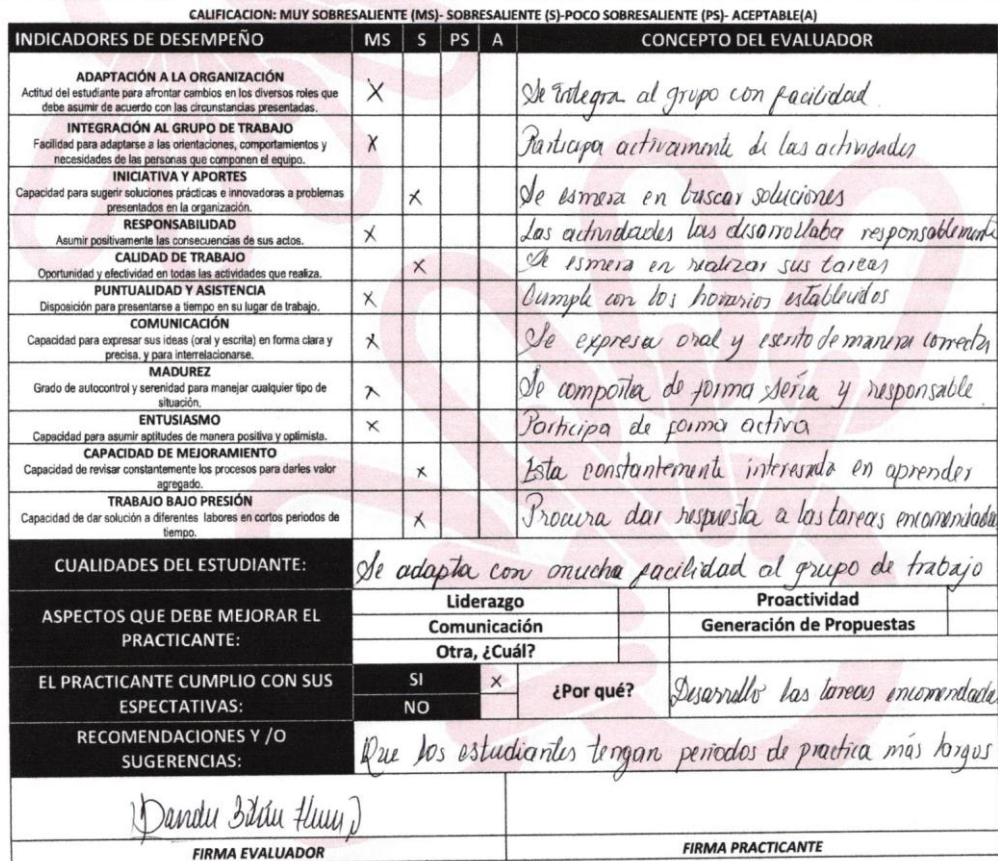 CALIFICACION: MUY SOBRESALIENTE (MS)- SOBRESALIENTE (S)-POCO SOBRESALIENTE (PS)- ACEPTABLE(A)
INDICADORES DE DESEMPEÑO MS S PS A CONCEPTO DEL EVALUADOR
ADAPTACIÓN A LA ORGANIZACIÓN
Actitud del estudiante para afrontar cambios en los diversos roles que
debe asumir de acuerdo con las circunstancias presentadas.
X Se integra al grupo con facilidad.
INTEGRACIÓN AL GRUPO DE TRABAJO
Facilidad para adaptarse a las orientaciones, comportamientos y
necesidades de las personas que componen el equipo.
X Participa activamente de las actividades
INICIATIVA Y APORTES
Capacidad para sugerir soluciones prácticas e innovadoras a problemas
presentados en la organización.
X Se esmera en buscar soluciones
RESPONSABILIDAD
Asumir positivamente las consecuencias de sus actos.
X Las actividades las disarrollaba responsablemente
CALIDAD DE TRABAJO
Oportunidad y efectividad en todas las actividades que realiza.
X Se esmera en realizar sus tareas
PUNTUALIDAD Y ASISTENCIA
Disposición para presentarse a tiempo en su lugar de trabajo.
X Cumple con los horarios establecidos
COMUNICACIÓN
Capacidad para expresar sus ideas (oral y escrita) en forma clara y
precisa, y para interrelacionarse.
X Se expresa oral y escrito de manera correcta
MADUREZ
Grado de autocontrol y serenidad para manejar cualquier tipo de
situación.
X Se comporta de forma seria y responsable.
ENTUSIASMO
Capacidad para asumir aptitudes de manera positiva y optimista.
X Participa de forma activa
CAPACIDAD DE MEJORAMIENTO
Capacidad de revisar constantemente los procesos para darles valor
agregado.
X Esta constantemente interesada en aprender
TRABAJO BAJO PRESIÓN
Capacidad de dar solución a diferentes labores en cortos periodos de
tiempo.
X Procura dar respuesta a las tareas encomendadas
CUALIDADES DEL ESTUDIANTE: Se adapta con mucha facilidad al grupo de trabajo
ASPECTOS QUE DEBE MEJORAR EL
PRACTICANTE:
Liderazgo Proactividad
Comunicación Generación de Propuestas
Otra, ¿Cuál?
EL PRACTICANTE CUMPLIO CON SUS
ESPECTATIVAS:
SI X
NO
¿Por qué? Desarrollo las tareas encomendadas
RECOMENDACIONES Y /O
SUGERENCIAS:
Que los estudiantes tengan periodos de practica más largos
FIRMA EVALUADOR FIRMA PRACTICANTE